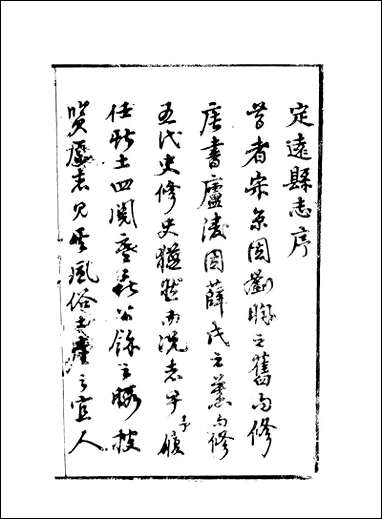 定遠縣志序
昔者宋京因劉昫之舊而修
唐書廬陵因薛氏之藁而修
五代史修史猶然而况志乎予履
任斯土四閱寒暑公餘之暇披
覽舊志見其風俗土產之宜人